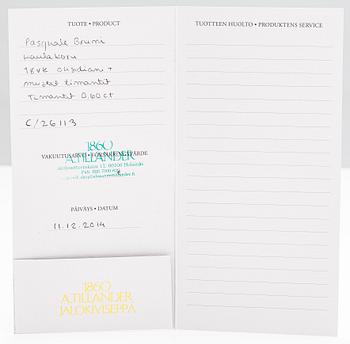 TUOTE • PRODUCT
Pasquale Bruni
Kaulakoru
18VK obsidian +
mustat timantit
Timantit 0,60ct
C/26113
1860
A.TILLANDER
VAKUUTUSARVO • FÖRSÄKRINGSVÄRDE
PÄIVÄYS • DATUM
11.12.2014
1860
A.TILLANDER
JALOKIVISEPPÄ
TUOTTEEN HUOLTO • PRODUKTENS SERVICE